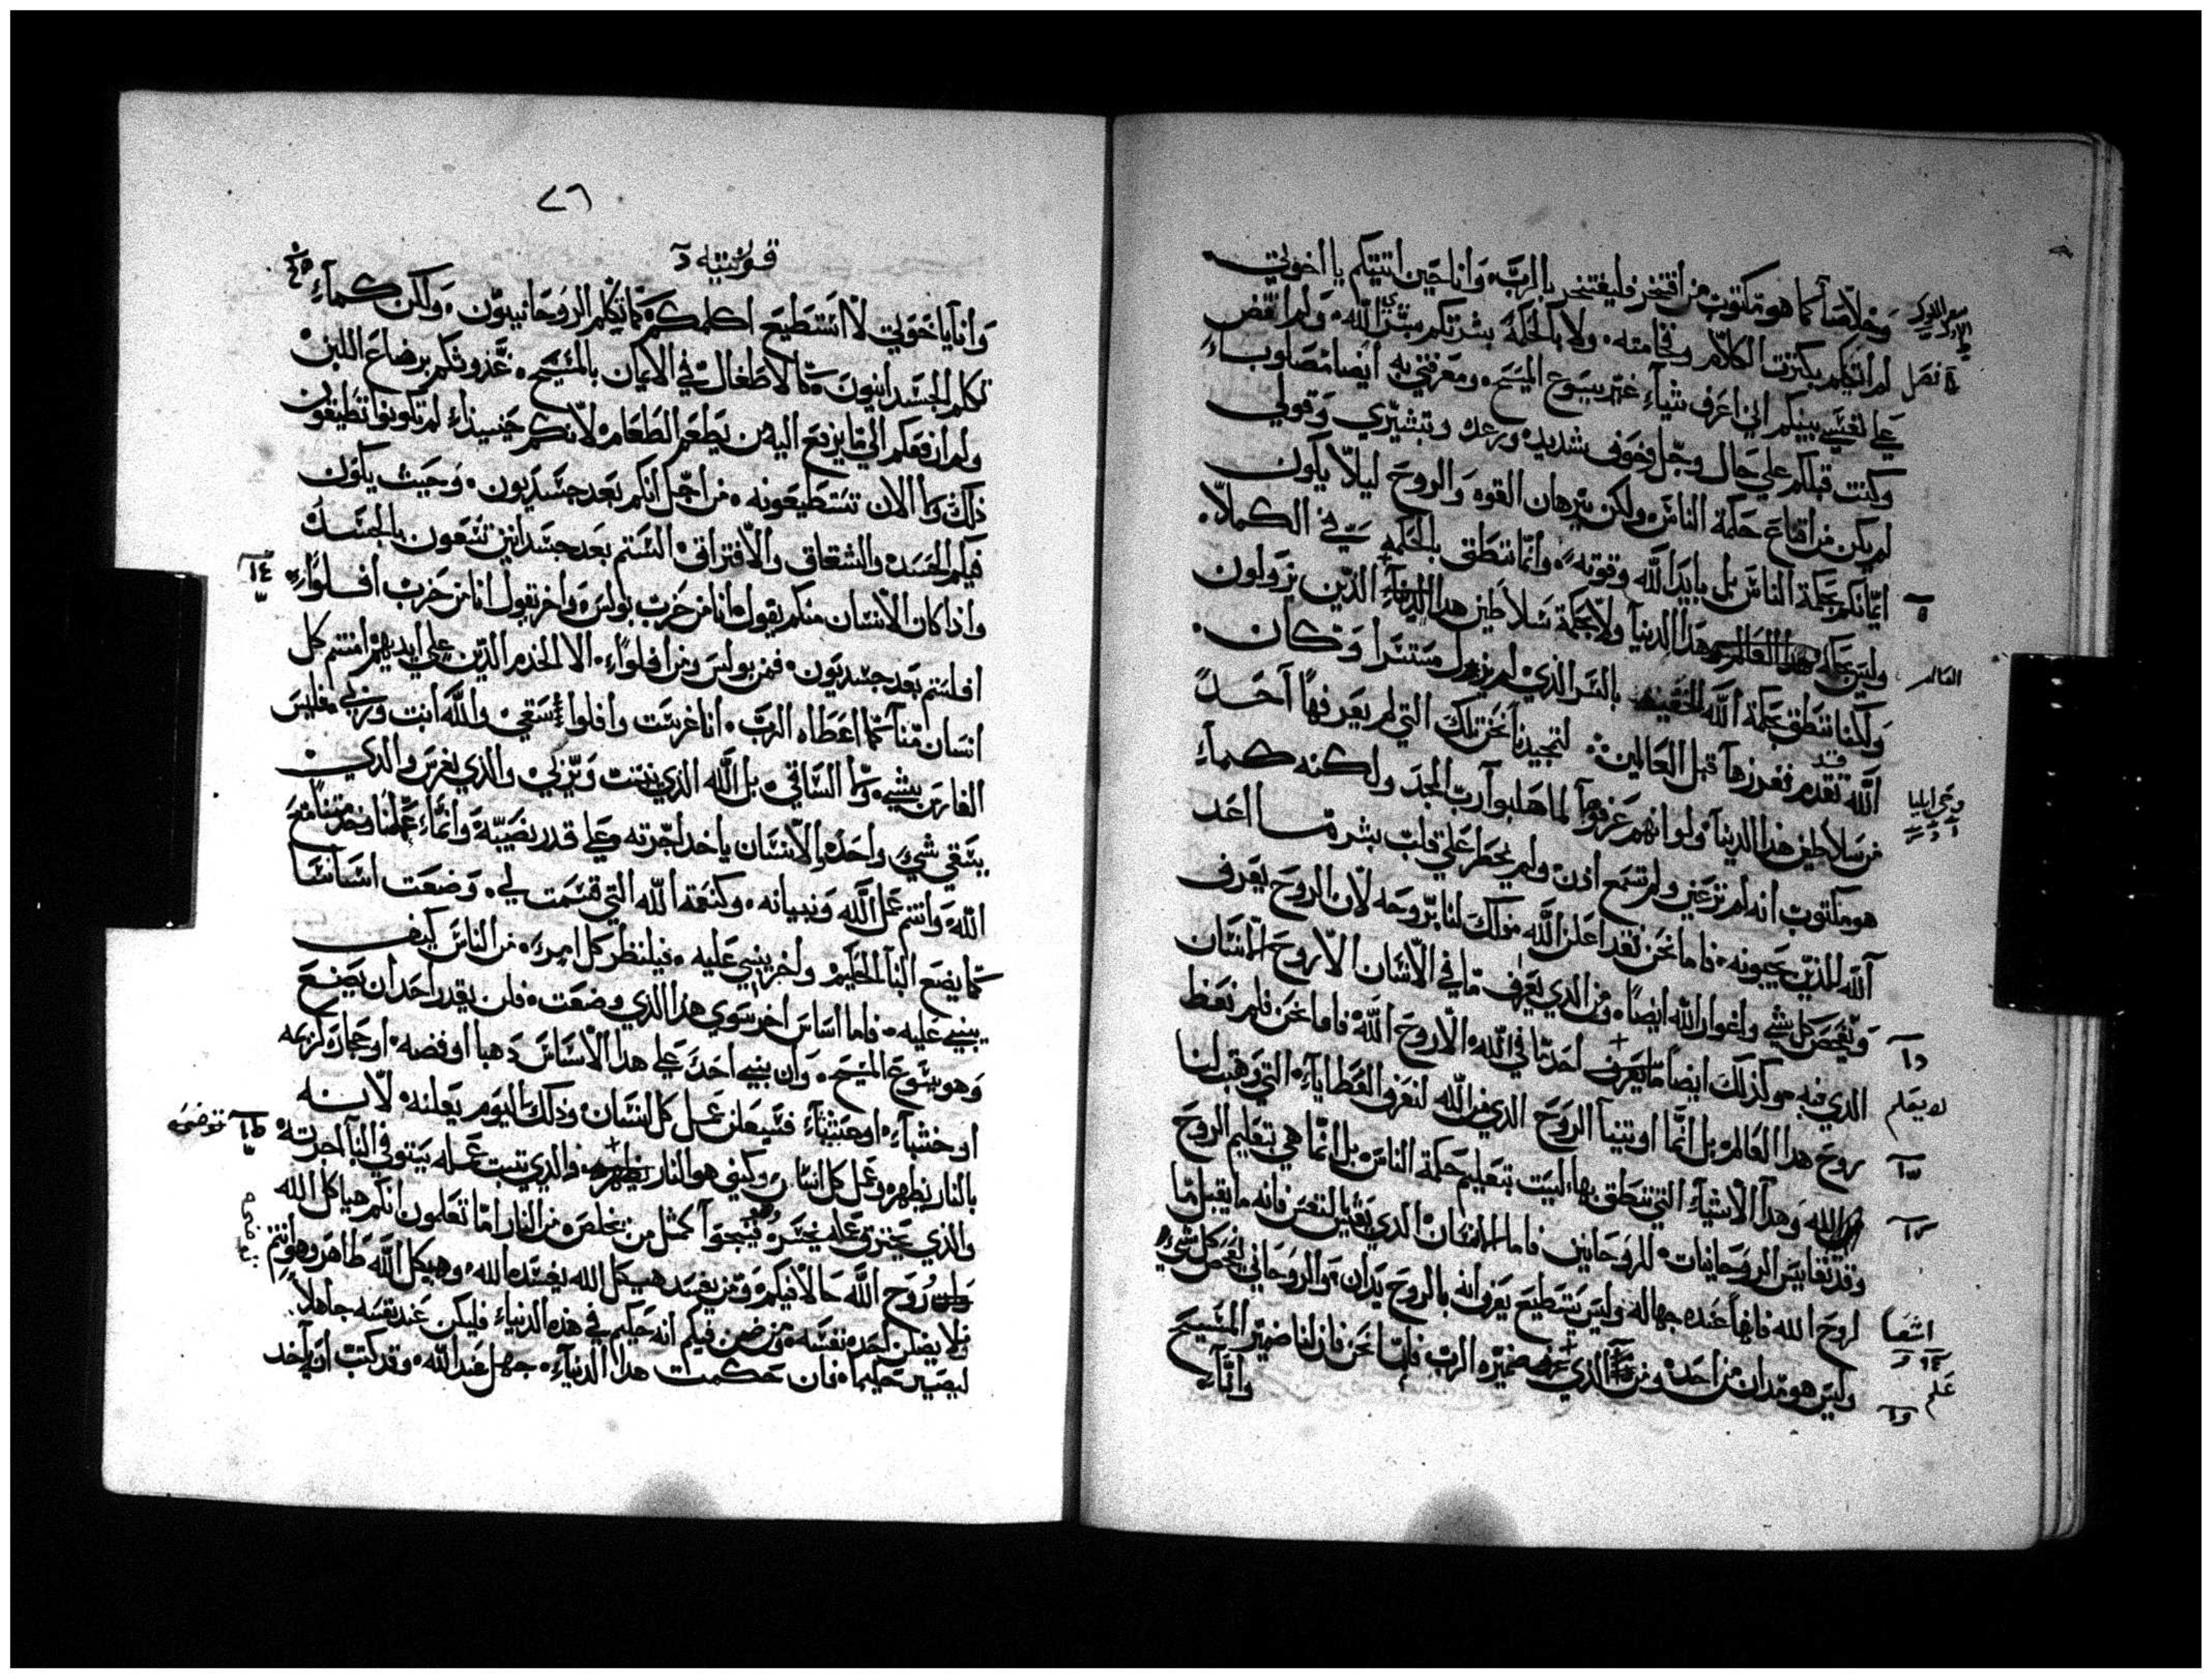 وخلاصاً كما هو مكتوب من افتخر فليفتخر بالرب وانا حين اتيتكم يا اخوتي
لم اتيكم بكثرت الكلام وفخامته ولا بالحكمة بشرتكم بشرى الله ولم اقض
علي نفسي بينكم اني اعرف شياء غير يسوع المسيح ومعرفتي به ايضا مصلوباء
وكنت قبلكم علي حال وجل وخوف شديد ورعده وتبشيري وقولي
لم يكن من اقناع حكمة الناس ولكن ببرهان القوه والروح ليلا يكون
ايمانكم بحكمة الناس بل بايد الله وقوته وانما ننطق بالحكمه في الكملا
وليس بحكمة هدا العالم هدا الدنيا ولا بحكمة سلاطين هدا الدنياء الدين يزولون
العالم
ولكنا ننطق بحكمة الله الخفيه بالسر الذي لم يزل مستترا وكان
الله تقدم ففرزها قبل العالمين لتمجيدنا نحن تلك التي لم يعرفها احد
من سلاطين هدا الدنيا ولو انهم عرفوها لما صلبوا رب المجد ولكنه كماء
هو مكتوب انه لم تر عين ولم تسمع ادن ولم يخطر علي قلب بشر ما اعد
الله للذين يحبونه فاما نحن فقد اعلن الله دلك لنا بروحه لان الروح يعرف
ويفحص كل شي واغوار الله ايضاً ومن الدي يعرف ما في الانسان الا روح الانسان
الدي فيه وكذلك ايضا ما يعرف احد ما في الله الا روح الله فاما نحن فلم نعط
لا يعلم
روح هدا العالم بل انما اوتينا الروح الدي من الله لنعرف العطاياء التي وهب لنا
الله وهدا الاشياء التي ننطق بها ليست بتعليم حكمة الناس بل انما هي بتعليم الروح
وقد نقايس الروحانيات للروحانيين فاما الانسان الدي بنفس فانه ما يقبل ما
لروح الله فانها عنده جهاله وليس يستطيع يعرف انه بالروح يدان والروحاني يفحص كل شي
اشعيا
وليس هو يدان من احد ومن الذي عرف ضمير الرب فاما نحن فان لنا ضمير المسيح
علم
وانّاء
٧٦
قورنتيه د
وانا يا اخوتي لا استطيع اكلمكم كما تكلم الروحانييون ولكن كماء
تكلم الجسدانيون كالاطفال في الايمان بالمسيح غذوتكم برضاع اللبن
ولم ارفعكم الي ما يرفع اليه من يطعم الطعام لانكم حينيذاء لم تكونوا تطيقون
ذلك ولا الان تستطيعونه من اجل انكم بعد جسديون وحيث يكون
فيكم الحسد والشقاق والافتراق الستم بعد جسدانين تسعون بالجسد
واذا كان الانسان منكم يقول انا من حزب بولس واخر يقول انا من حزب افلواء
افلستم بعد جسديون فمن بولس ومن افلواء الا الخدم الذين علي ايديهم امنتم كل
انسان منا كما اعطاه الرب انا غرست وافلوا سقي والله انبت وربي فليس
الغارس بشي ولا الساقي بل الله الذي ينبت ويزكي والذي يغرس والدي
يسقي شي واحد والانسان ياخد اجرته علي قدر نصبه وانماء عملنا وخدمتنا مع
الله وانتم عمل الله وبنيانه وكنعمة الله التي قسمت لي وضعت اساسا
كما يضع البنا الحكيم واخر يبني عليه فلينظر كل امرء من الناس كيف
يبني عليه فاما اساس اخر سوي هدا الدي وضعت فلن يقدر احد ان يضع
وهو يسوع المسيح وان بني احد علي هدا الاساس دهبا او فضه او حجارة كريمه
او خشباء او عشباء فسيعلن عمل كل انسان وذلك اليوم يعلنه لانه
بالنار يظهر وعمل كل انسان وكيف هو النار يظهره والدي تثبت عمله يستوفي البنا اجرته
والدي يحترق عمله يخسر فينجوا كمثل من يخلص من النار اما تعلمون انكم هياكل الله
وان روح الله حالا فيكم ومن يفسد هيكل الله يفسده الله وهيكل الله طاهر وهو انتم
فلا يضلن احد نفسه ومن ضن فيكم انه حكيم في هذه الدنياء فليكن عند نفسه جاهلاً
ليصير حكيما فان حكمت هدا الدنياء جهل عند الله وقد كتب انه ياخد